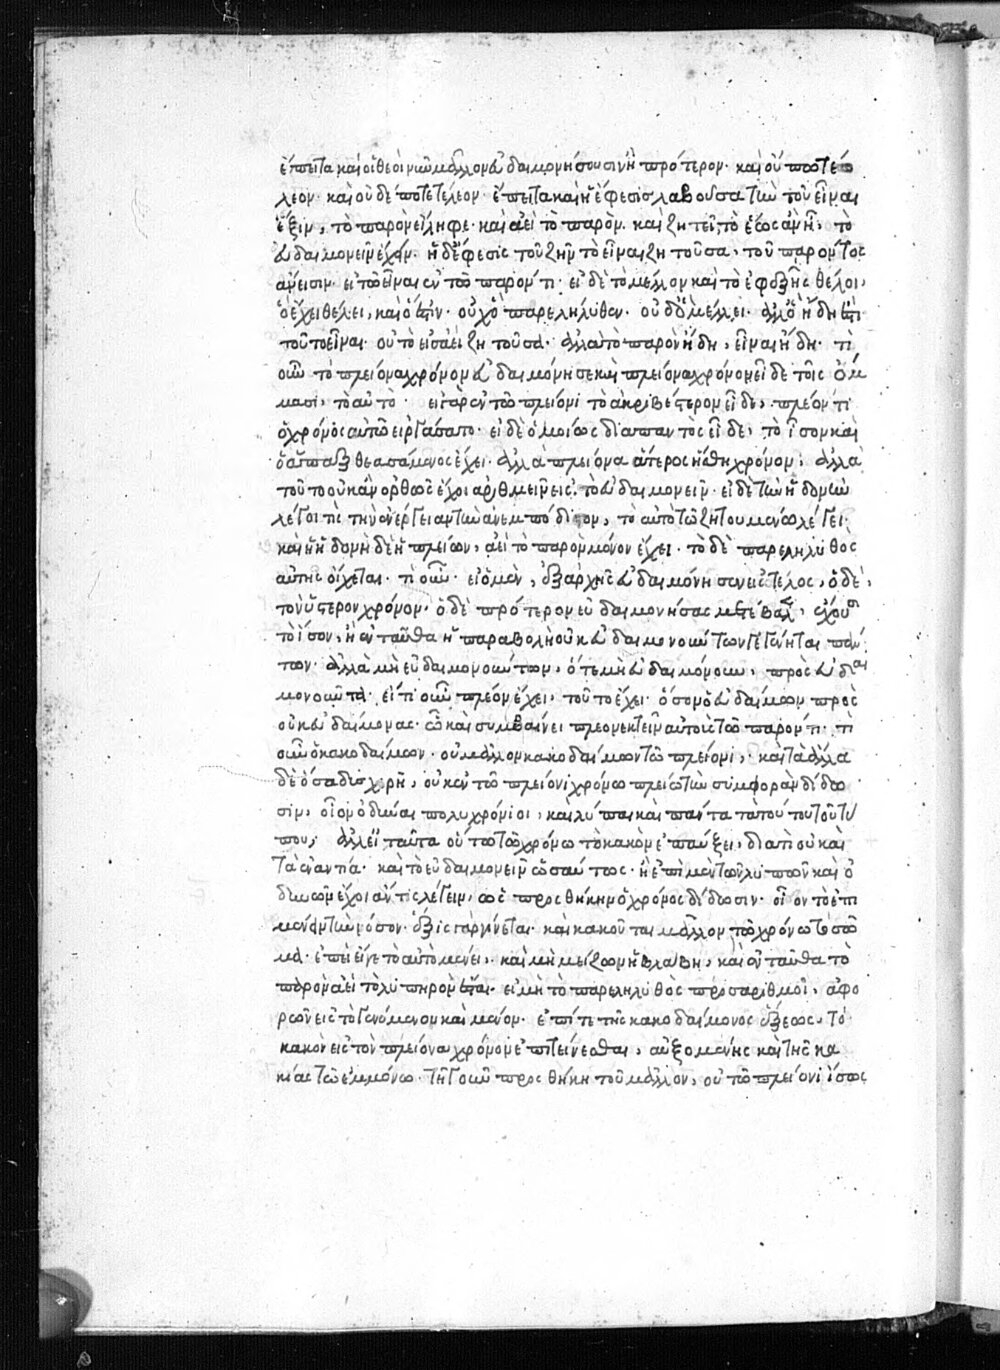 ἔπειτα καὶ οἱ θεοὶ νῦν μᾶλλον εὐδαιμονήσουσιν ἢ πρότερον· καὶ οὔπω τέ
λεον· καὶ οὐδέποτε τέλεον· ἔπειτα καὶ ἡ ἔφεσις λαβοῦσα τὴν τοῦ εἶναι
ἕξιν, τὸ παρὸν εἴληφε· καὶ ἀεὶ τὸ παρὸν· καὶ ζητεῖ τὸ ἕως ἂν ἦ, τὸ
εὐδαιμονεῖν ἔχειν· ἡ δὲ ἔφεσις τοῦ ζῆν τὸ εἶναι ζητοῦσα, τοῦ παρόντος
ἂν εἴη· εἰ τὸ εἶναι ἐν τῷ παρόντι· εἰ δὲ τὸ μέλλον καὶ τὸ ἐφεξῆς θέλοι,
ὃ ἔχει θέλει, καὶ ὅ ἐστιν· οὐχ ὃ παρελήλυθεν· οὐδ' ὃ μέλλει· ἀλλ' ὃ ἤδη ἐστὶ
τοῦτο εἶναι· οὐ τὸ εἰσαεὶ ζητοῦσα· ἀλλὰ τὸ παρὸν ἤδη, εἶναι ἤδη· τί
οὖν τὸ πλείονα χρόνον εὐδαιμόνησε καὶ πλείονα χρόνον εἶδε τοῖς ὄμ
μασι, τὸ αὐτό· εἰ γὰρ ἐν τῷ πλείονι τὸ ἀκριβέστερον εἶδε, πλέον τι
ὁ χρόνος αὐτῷ εἰργάσατο· εἰ δὲ ὁμοίως διαπαντὸς εἶδε, τὸ ἴσον καὶ
ὁ ἅπαξ θεασάμενος ἔχει· ἀλλὰ πλείονα ἅτερος ἥσθη χρόνον, ἀλλὰ
τοῦτο οὐκ ἂν ὀρθῶς ἔχοι ἀριθμεῖν εἰς τὸ εὐδαιμονεῖν· εἰ δὲ τὴν ἡδονὴν
λέγοι τις τὴν ἐνέργειαν τὴν ἀνεμπόδιστον, τὸ αὐτὸ τῷ ζητουμένῳ λέγει·
καὶ ἡ ἡδονὴ δὲ ἡ πλείων, ἀεὶ τὸ παρὸν μόνον ἔχει· τὸ δὲ παρεληλυθὸς
αὐτῆς οἴχεται· τί οὖν· εἰ ὁ μὲν, ἐξ ἀρχῆς εὐδαιμόνησεν εἰς τέλος, ὁ δὲ,
τὸν ὕστερον χρόνον· ὁ δὲ πρότερον εὐδαιμονήσας μετέβαλ, ἔχουσι
τὸ ἴσον, ἢ ἐνταῦθα ἡ παραβολὴ οὐκ εὐδαιμονούντων γεγένηται πάν
των· ἀλλὰ μὴ εὐδαιμονούντων, ὅτε μὴ εὐδαιμόνουν, πρὸς εὐδαι
μονοῦντα· εἴ τι οὖν πλέον ἔχει, τοῦτο ἔχει· ὅσον ὁ εὐδαίμων πρὸς
οὐκ εὐδαίμονας· ᾧ καὶ συμβαίνει πλεονεκτεῖν αὐτοὺς τῷ παρόντι· τί
οὖν ὁ κακοδαίμων· οὐ μᾶλλον κακοδαίμων τῷ πλείονι, καὶ τὰ ἄλλα
δὲ ὅσα δυσχερῆ, οὐκ ἐν τῷ πλείονι χρόνῳ πλείω τὴν συμφορὰν δίδω
σιν, οἷον ὀδύναι πολυχρόνιοι, καὶ λύπαι καὶ πάντα τὰ τούτου τοῦ τύ
που, ἀλλ' εἰ ταῦτα οὕτω τῷ χρόνῳ τὸ κακὸν ἐπαύξει, διατί οὐ καὶ
τὰ ἐναντία· καὶ τὸ εὐδαιμονεῖν ὡσαύτως· ἢ ἐπὶ μὲν τῶν λυπῶν καὶ ὀ
δυνῶν ἔχοι ἄν τις λέγειν, ὡς προσθήκην ὁ χρόνος δίδωσιν· οἷον τὸ ἐπι
μένειν τὴν νόσον· ἕξις γὰρ γίνεται· καὶ κακοῦται μᾶλλον τῷ χρόνῳ τὸ σῶ
μα· ἐπεὶ εἴγε τὸ αὐτὸ μένει, καὶ μὴ μείζων ἡ βλάβη, καὶ ἐνταῦθα τὸ
παρὸν ἀεὶ τὸ λυπηρὸν ἔσται· εἰ μὴ τὸ παρεληλυθὸς προσαριθμοῖ, ἀφο
ρῶν εἰς τὸ γενόμενον καὶ μένον· ἐπί τε τῆς κακοδαίμονος ἕξεως, τὸ
κακὸν εἰς τὸν πλείονα χρόνον ἐπιτείνεσθαι, αὐξομένης καὶ τῆς κα
κίας τῷ ἐμμόνῳ· τῇ γοῦν προσθήκῃ τοῦ μᾶλλον, οὐ τῷ πλείονι ἴσως